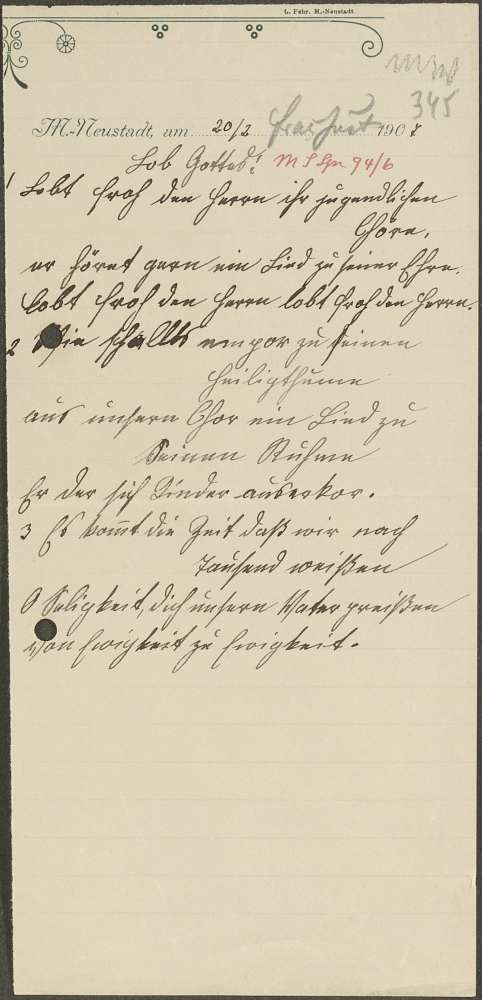 L. Fehr. M.-Neustadt.
345
M.-Neustadt, am 20/2 1908
Lob Gottes!
1 Lobt froh den Herrn ihr jugendlichen
Chöre,
er höret gern ein Lied zu seiner Ehre.
lobt froh den Herrn lobt froh den Herrn.
2 Wie schallts empor zu seinem
Heiligthume
aus unsern Chor ein Lied zu
Seinem Ruhme
Er der sich Kinder auserkor.
3 Es kom̄t die Zeit daß wir nach
Tausend weißen
O Seligkeit, dich unsern Vater preißen
von Ewigkeit zu Ewigkeit.